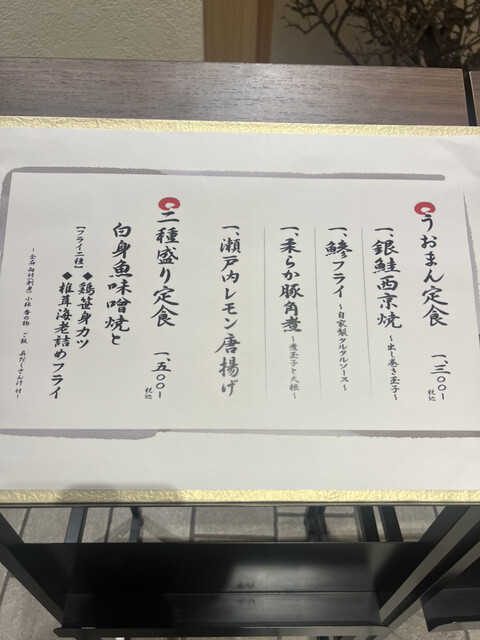 うおまん定食 一、三〇〇- 税込
一、銀鮭西京焼 ~出し巻き玉子~
一、鯵フライ ~自家製タルタルソース~
一、柔らか豚角煮 ~煮玉子と大根~
一、瀬戸内レモン唐揚げ
二種盛り定食 一、五〇〇- 税込
白身魚味噌焼と
【フライ二種】 ◆鶏笹身カツ
◆椎茸海老詰めフライ
~全品 向付(刺き) 小鉢 香の物 ご飯 具だくさん汁 付~